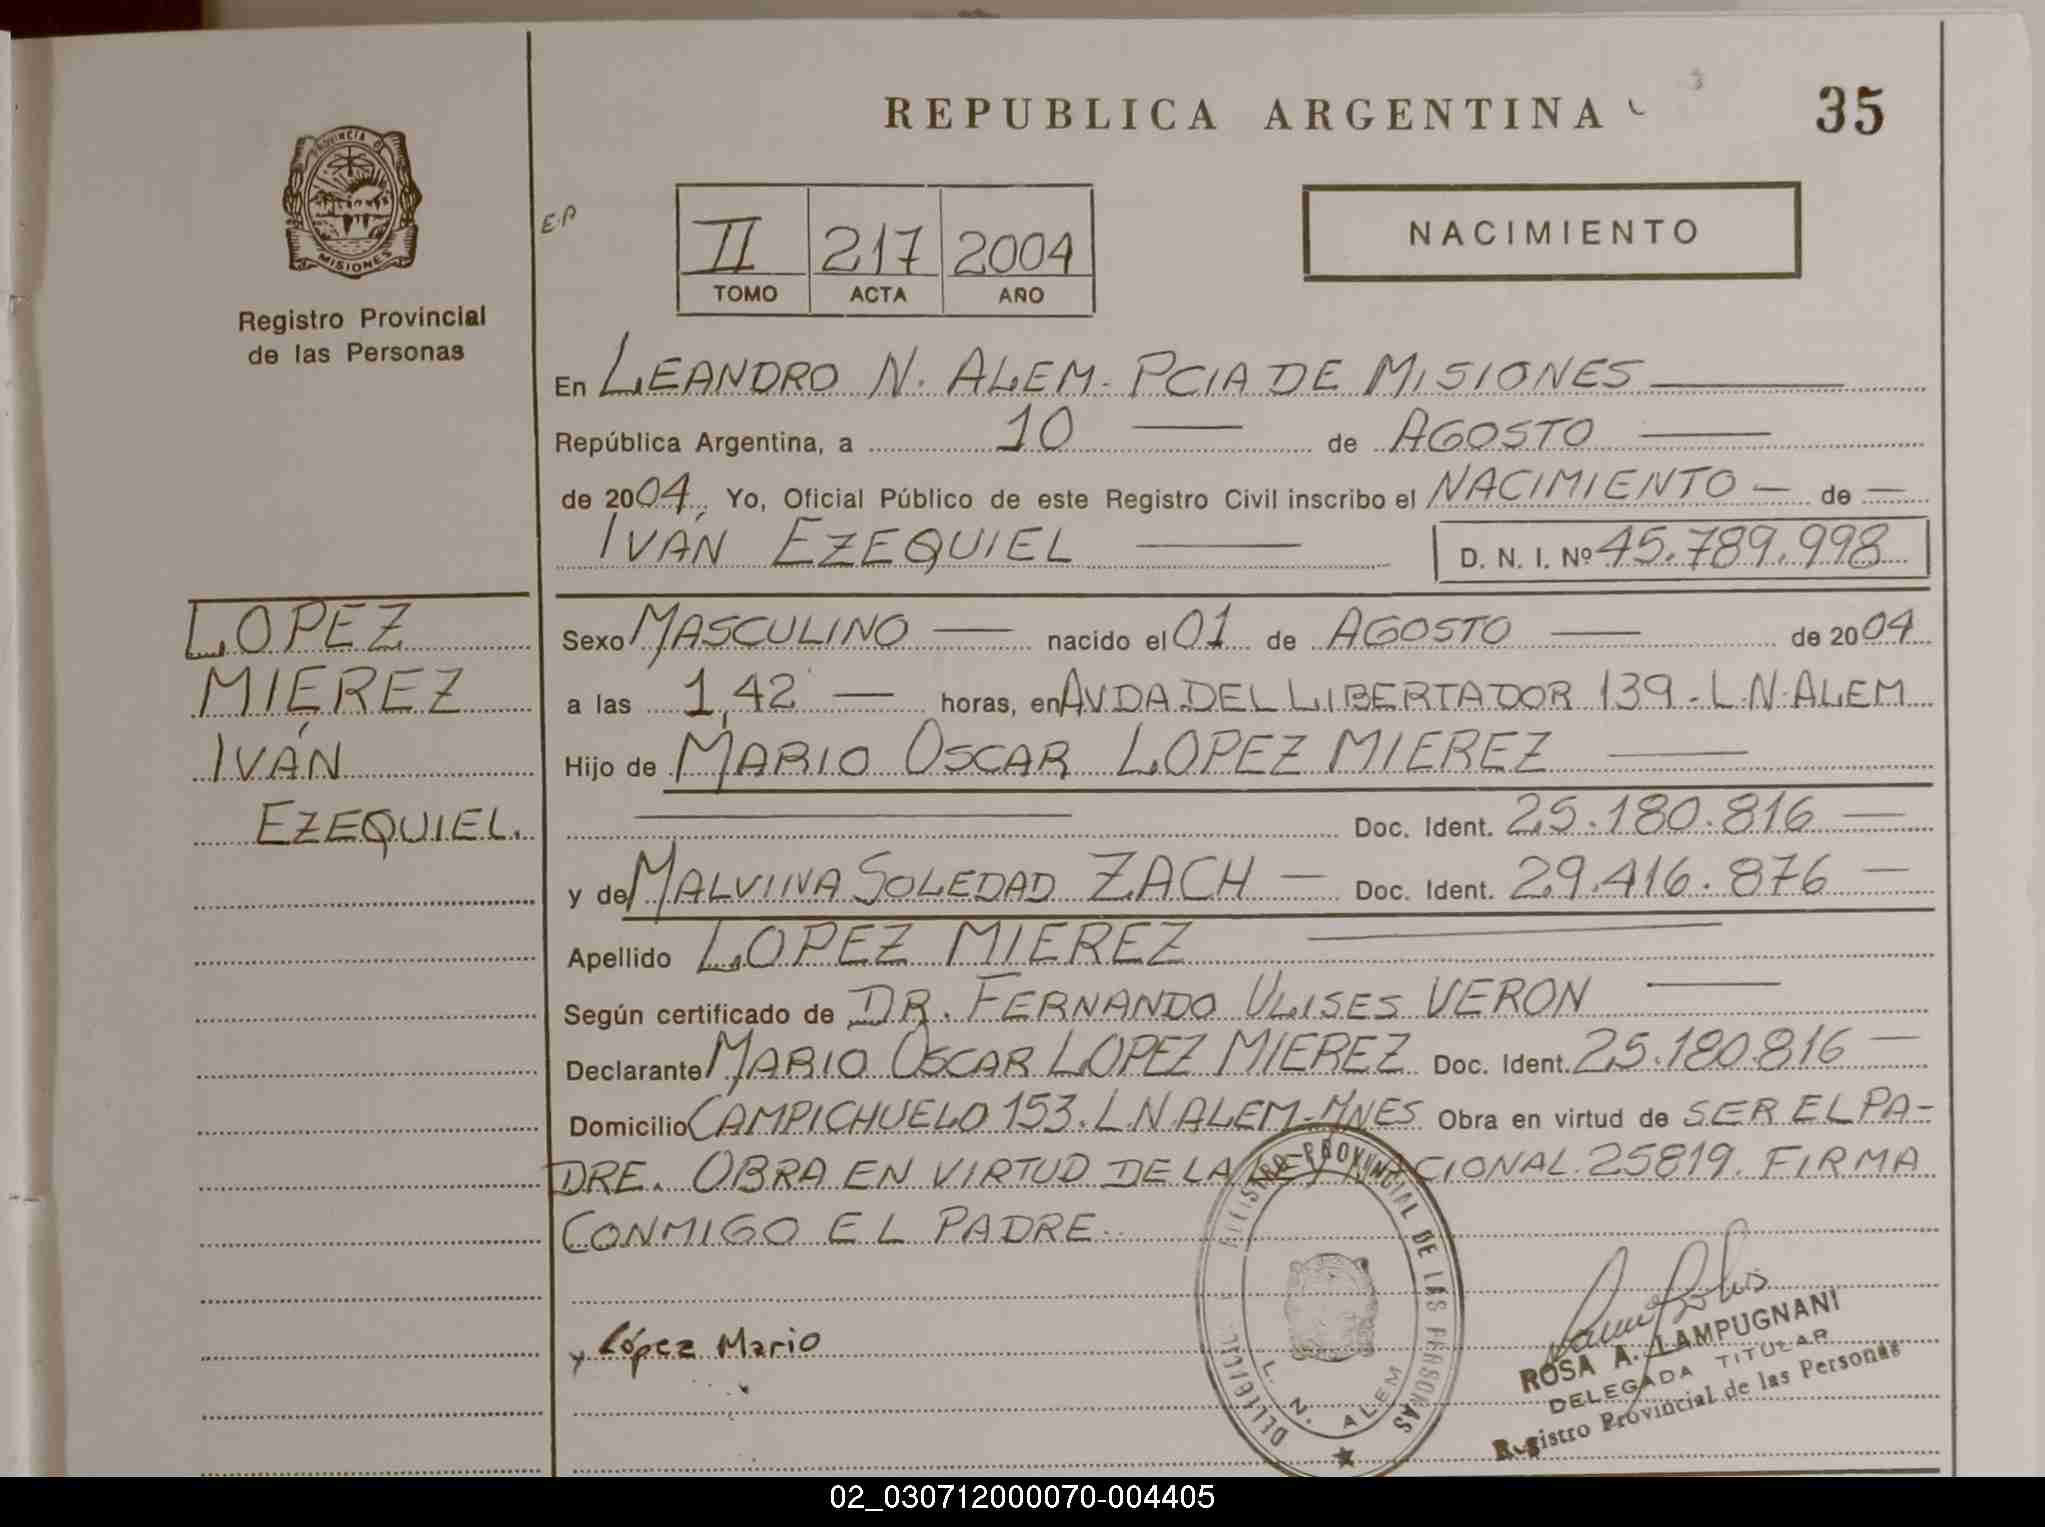 REPUBLICA ARGENTINA
35
PROVINCIA DE
MISIONES
Registro Provincial
de las Personas
E.P
II 217 2004
TOMO ACTA AÑO
NACIMIENTO
En LEANDRO N. ALEM. PCIA DE MISIONES
República Argentina, a 10 de AGOSTO
de 2004. Yo, Oficial Público de este Registro Civil inscribo el NACIMIENTO de
IVÁN EZEQUIEL D. N. I. Nº 45.789.998
LOPEZ
MIEREZ
IVÁN
EZEQUIEL.
Sexo MASCULINO nacido el 01 de AGOSTO de 2004
a las 1,42 horas, en AVDA DEL LIBERTADOR 139 - L.N. ALEM
Hijo de MARIO OSCAR LOPEZ MIEREZ
Doc. Ident. 25.180.816
y de MALVINA SOLEDAD ZACH Doc. Ident. 29.416.876
Apellido LOPEZ MIEREZ
Según certificado de DR. FERNANDO ULISES VERON
Declarante MARIO OSCAR LOPEZ MIEREZ Doc. Ident. 25.180.816
Domicilio CAMPICHUELO 153. L.N ALEM-MNES Obra en virtud de SER EL PA-
DRE. OBRA EN VIRTUD DE LA LEY NACIONAL 25819. FIRMA
CONMIGO EL PADRE.
REGISTRO PROVINCIAL DE LAS PERSONAS
L. N. ALEM
López Mario
ROSA A. LAMPUGNANI
DELEGADA TITULAR
Registro Provincial de las Personas
02_030712000070-004405